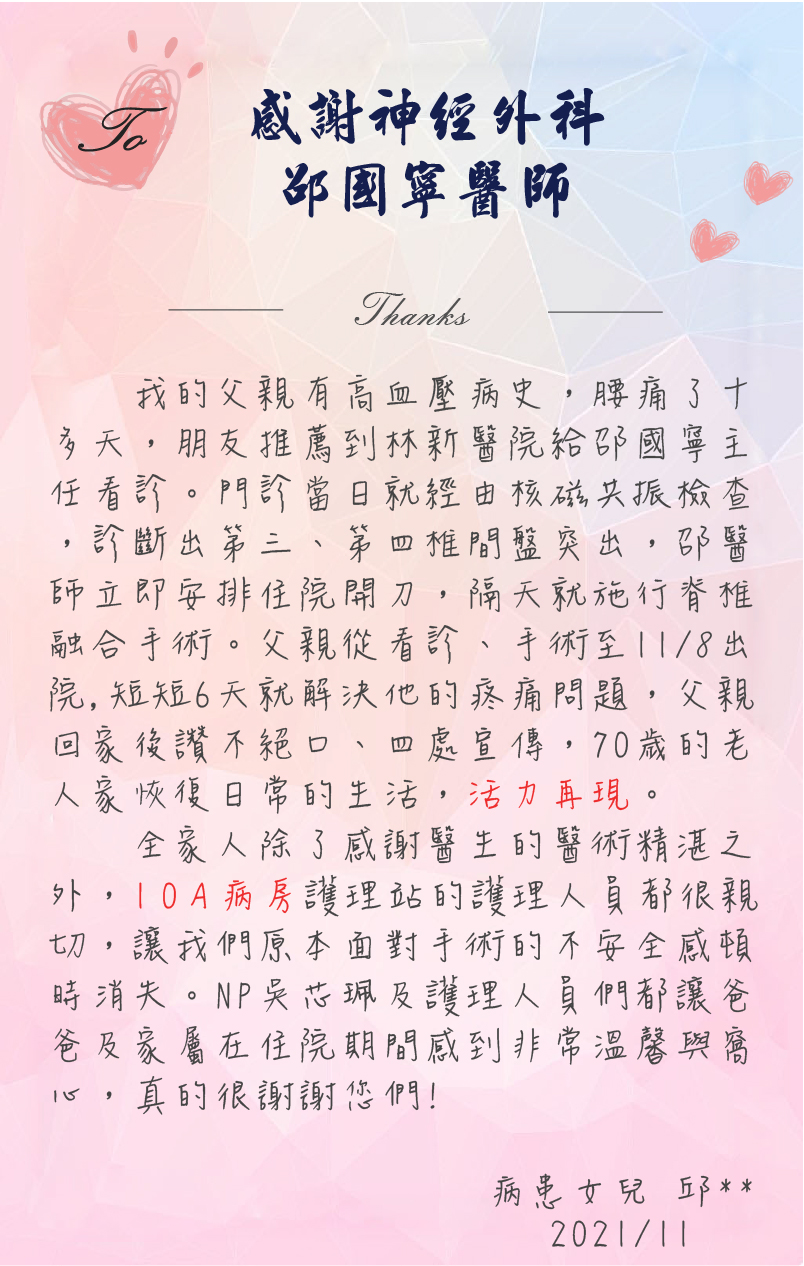 To
感謝神經外科
邵國寧醫師
Thanks
我的父親有高血壓病史，腰痛了十
多天，朋友推薦到林新醫院給邵國寧主
任看診。門診當日就經由核磁共振檢查
，診斷出第三、第四椎間盤突出，邵醫
師立即安排住院開刀，隔天就施行脊椎
融合手術。父親從看診、手術至11/8出
院,短短6天就解決他的疼痛問題，父親
回家後讚不絕口、四處宣傳，70歲的老
人家恢復日常的生活，活力再現。
全家人除了感謝醫生的醫術精湛之
外，10A病房護理站的護理人員都很親
切，讓我們原本面對手術的不安全感頓
時消失。NP吳芯珮及護理人員們都讓爸
爸及家屬在住院期間感到非常溫馨與窩
心，真的很謝謝您們!
病患女兒 邱**
2021/11